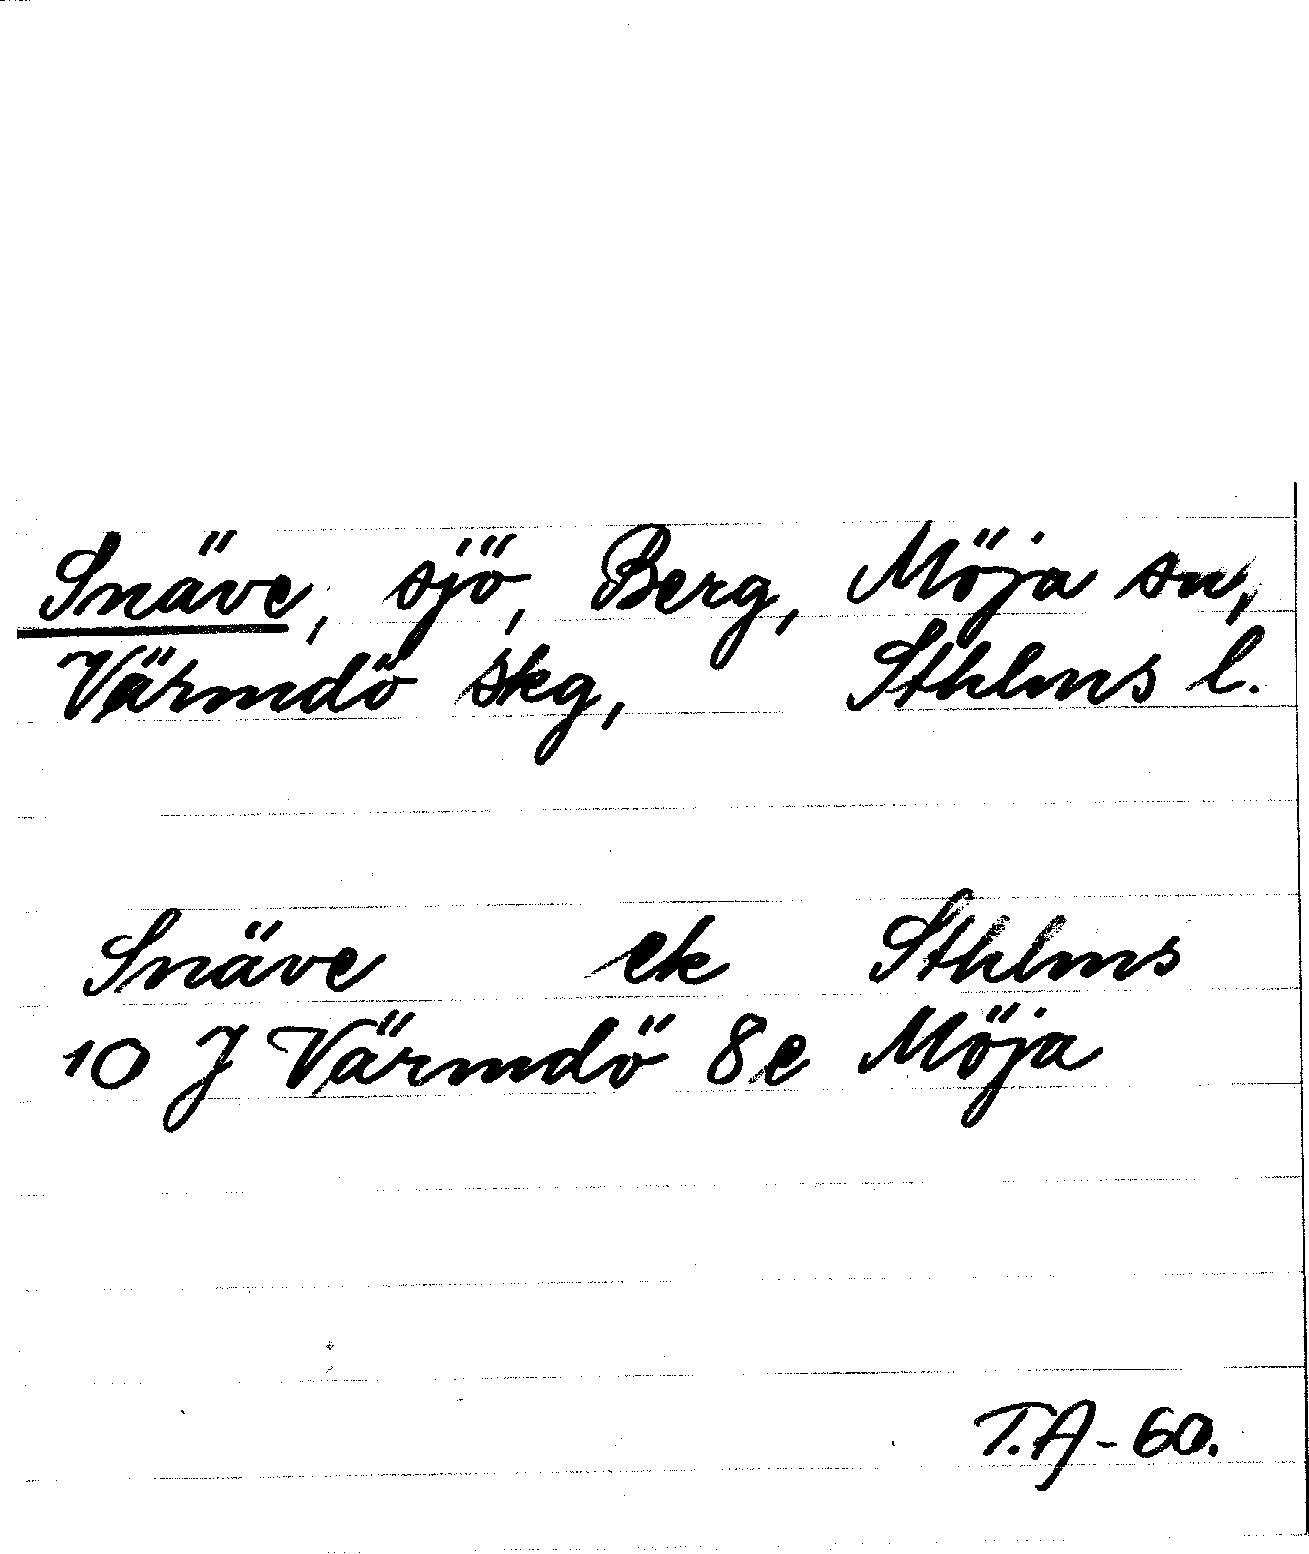 Snäve, sjö, Berg, Möja sn,
Värmdö skg, Sthlms l.
Snäve ek Sthlms
10 J Värmdö 8e Möja
T.A-60.